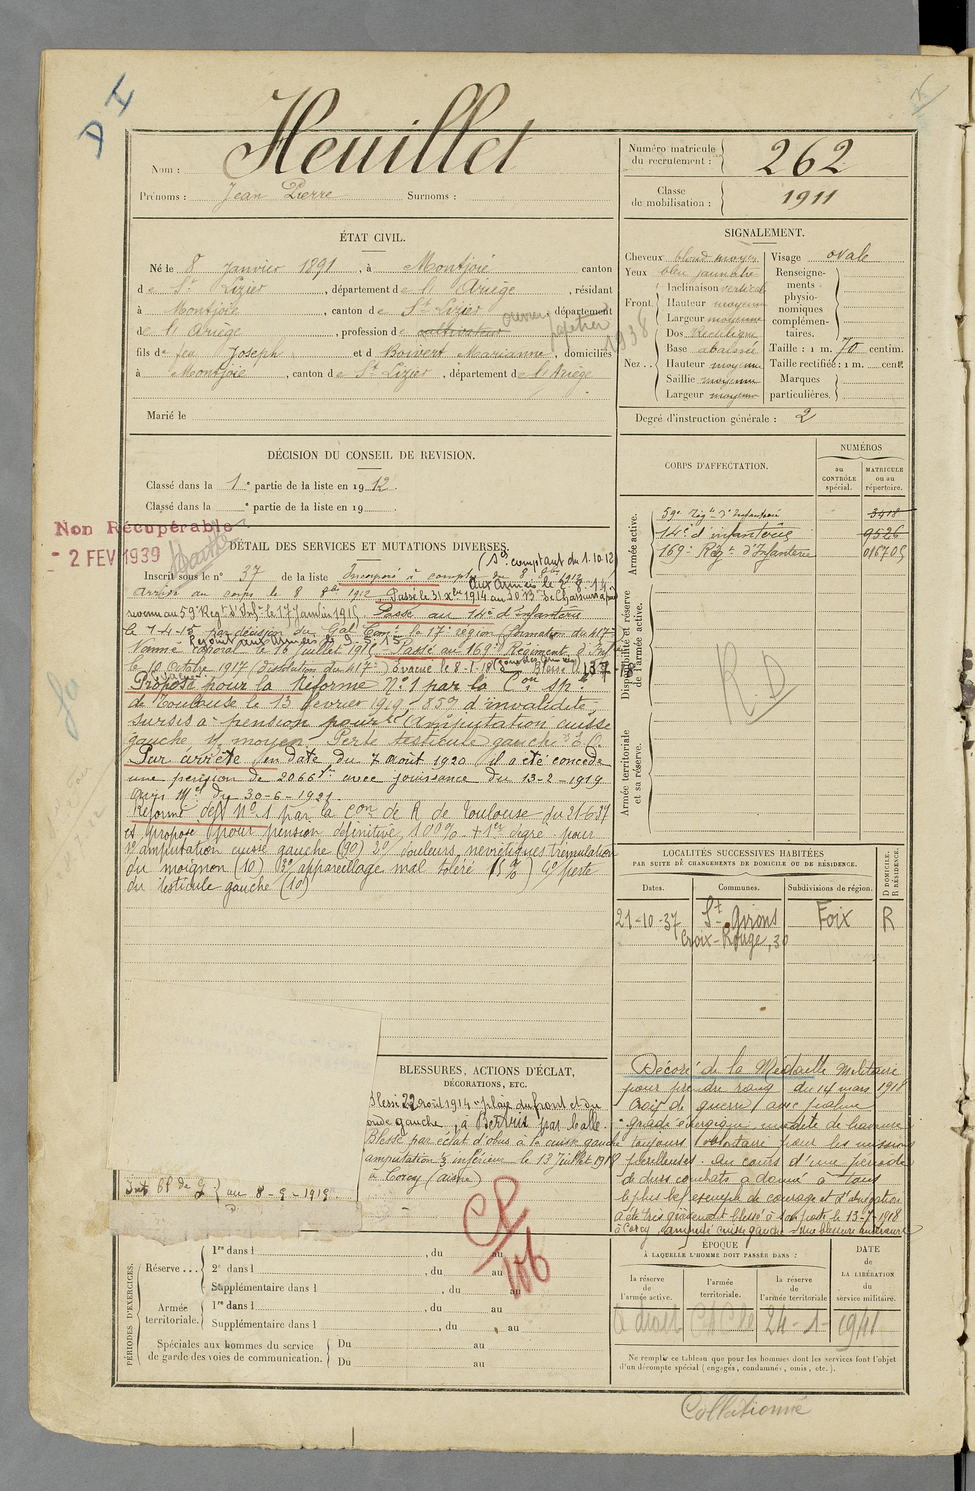 Nom : Heuillet
Prénoms : Jean Pierre Surnoms :
Numéro matricule du recrutement : 262
Classe de mobilisation : 1911
ÉTAT CIVIL.
Né le 8 janvier 1891, à Montjoie canton
de St Lizier, département de l'Ariège, résidant
à Montjoie, canton de St Lizier, département
de l'Ariège, profession de cultivateur ouvrier papetier 1938
fils de feu Joseph et d Boivert Marianne, domiciliés
à Montjoie, canton de St Lizier, département de l'Ariège
Marié le
SIGNALEMENT.
Cheveux blond moyen Visage ovale
Yeux bleu jaunâtre
Front Inclinaison vertical
Hauteur moyenne
Largeur moyenne
Nez Dos Rectiligne
Base abaissée
Hauteur moyenne
Saillie moyenne
Largeur moyenne
Renseignements physionomiques complémentaires.
Taille : 1 m. 70 centim.
Taille rectifiée : 1 m. cent.
Marques particulières.
Degré d'instruction générale : 2
DÉCISION DU CONSEIL DE REVISION.
Classé dans la 1e partie de la liste en 1912.
Classé dans la e partie de la liste en 19
Non Récupérable
- 2 FEV 1939
DÉTAIL DES SERVICES ET MUTATIONS DIVERSES.
(Sce comptant du 1.10.12
Inscrit sous le n° 37 de la liste Incorporé à compter du 8 8bre 1912
Arrivé au corps le 8 8bre 1912. Passé le 31 Xbre 1914 au
revenu au 59e Régt d'Infie le 17 Janvier 1915. Passé au 14e d'infanterie
le 7-4-15 par décision du Gal Comt la 17e région (formation du 417e
Nommé caporal le 16 juillet 1915 Passé au 169e Régiment d'Inf
le 10 Octobre 1917 (Dissolution du 417e) évacué le 8-1-18
Proposé pour la Réforme N° 1 par la Con sple
de Toulouse le 13 février 1919 - 85% d'invalidité
sursis à pension pour: Amputation cuisse
gauche 1/3 moyen. Perte testicule gauche
Par arrêté en date du 7 août 1920 il a été concédé
une pension de 2066f avec jouissance du 13-2-1919
Avis Mel du 30-6-1921.
Réformé défi N° 1 par la Con de R de Toulouse du 21-6-37
et proposé pour pension définitive, 100% + 1er degré pour
1° amputation cuisse gauche (90) 2° douleurs, névritiques, trémulation
du moignon (10) 3° appareillage mal toléré (5%) 4° perte
du testicule gauche (10)
CORPS D'AFFECTATION.
NUMÉROS
au CONTRÔLE spécial.
MATRICULE ou au répertoire.
Armée active.
59e Régt d'Infanterie 3418
14e d'infanterie 9526
169e Régt d'Infanterie 016705
Disponibilité et réserve de l'armée active.
R.D
Armée territoriale et sa réserve.
LOCALITÉS SUCCESSIVES HABITÉES
PAR SUITE DE CHANGEMENTS DE DOMICILE OU DE RÉSIDENCE.
Dates. Communes. Subdivisions de région. D DOMICILE. R RÉSIDENCE.
21-10-37 St-Girons Foix R
Croix-Rouge, 30
BLESSURES, ACTIONS D'ÉCLAT,
DÉCORATIONS, ETC.
Blessé 22 août 1914 plaie du front et du
coude gauche, à Bertrix par balle.
Blessé par éclat d'obus à la cuisse gauche
amputation 1/3 inférieur le 13 Juillet 1918
à Corcy (Aisne)
Décoré de la Médaille Militaire
pour prendre rang du 14 mars 1918
Croix de guerre avec palme
gradé énergique modèle de bravoure
toujours volontaire pour les missions
périlleuses. Au cours d'une période
de durs combats a donné à tous
le plus bel exemple de courage et d'abnégation
a été très grièvement blessé à son poste le 13-7-1918
à Corcy amputé cuisse gauche Une blessure antérieure
au 8-9-1919
CP
106
PÉRIODES D'EXERCICES.
Réserve ... 1re dans l , du au
2e dans l , du au
Supplémentaire dans l , du au
Armée territoriale. 1re dans l , du au
Supplémentaire dans l , du au
Spéciales aux hommes du service de garde des voies de communication. Du au
Du au
ÉPOQUE
À LAQUELLE L'HOMME DOIT PASSER DANS :
la réserve de l'armée active.
l'armée territoriale.
la réserve de l'armée territoriale
DATE de LA LIBÉRATION du service militaire.
24-1-1941
Ne remplir ce tableau que pour les hommes dont les services font l'objet
d'un décompte spécial (engagés, condamnés, omis, etc.).
Collationné